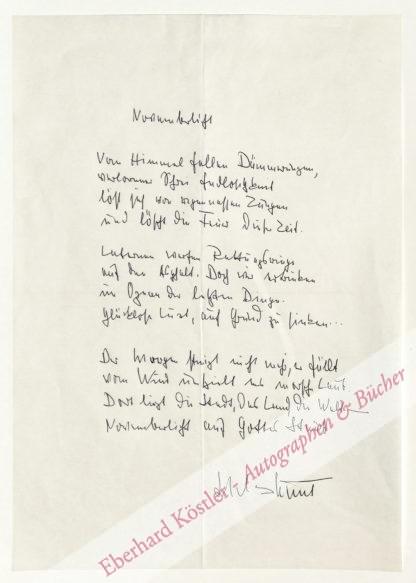 Novemberlicht
Vom Himmel fallen Dämmerungen,
verlorener Endlosigkeit
löst sich von regennassen Zungen
und löscht die Feuer dieser Zeit.
Laternen werfen Rettungsringe
auf den Asphalt. Doch wir ertrinken
im Ozean der letzten Dinge.
Glücklose Lust, auf Grund zu sinken...
Der Morgen steigt nicht mehr, er fällt
vom Wind
Dort liegt die Stadt, das Land, die Welt
Novemberlicht auf Gottes
Eberhard Köstler - Autographen & Bücher